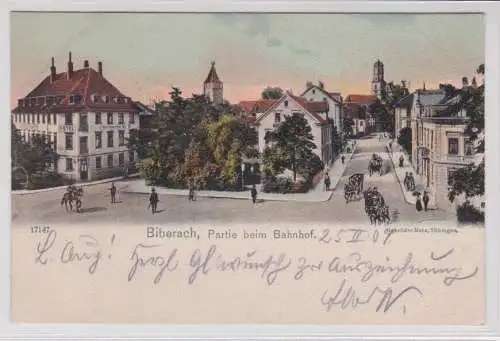 17147 Biberach, Partie beim Bahnhof. 25 II 01
Gebrüder Metz, Tübingen.
L. Aug! Herzl. Glückwunsch zur Auszeichnung